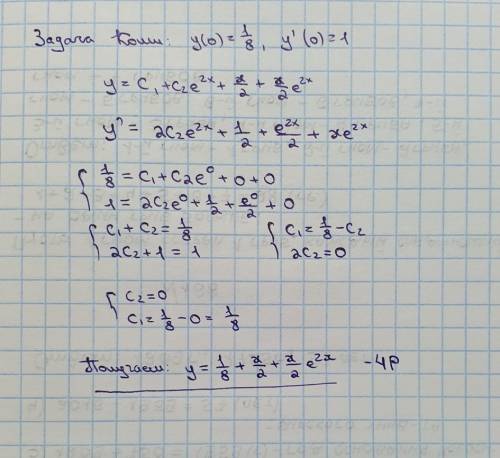 Задача Коши: y(0)=1/8, y'(0)=1
y=C₁+C₂e^{2x}+x/2+x/2 e^{2x}
y'=2C₂e^{2x}+1/2+e^{2x}/2+xe^{2x}
{ 1/8=C₁+C₂e⁰+0+0
1=2C₂e⁰+1/2+e⁰/2+0
{ C₁+C₂=1/8 { C₁=1/8-C₂
2C₂+1=1 2C₂=0
{ C₂=0
C₁=1/8-0=1/8
Получаем: y=1/8+x/2+x/2 e^{2x} -ЧР